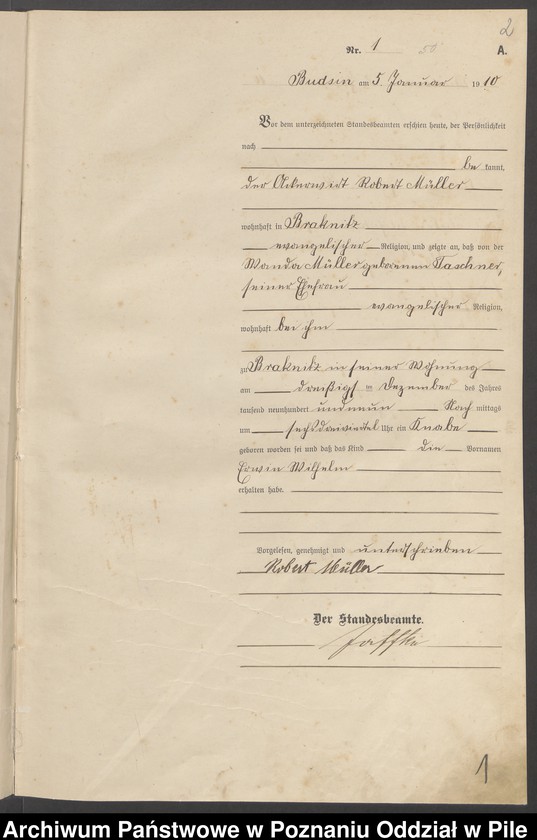 2
Nr. 1
A.
Budsin am 5. Januar 1910
Vor dem unterzeichneten Standesbeamten erschien heute, der Persönlichkeit
nach
be kannt,
der Ackerwirt Robert Müller
wohnhaft in Braknitz
evangelischer Religion, und zeigte an, daß von der
Wanda Müller geborenen Taschner,
seiner Ehefrau
evangelischer Religion,
wohnhaft bei ihm
zu Braknitz in seiner Wohnung
am dreißigst en Dezember des Jahres
tausend neunhundert und neun Nach mittags
um sechsdreiviertel Uhr ein Knabe
geboren worden sei und daß das Kind die Vornamen
Erwin Wilhelm
erhalten habe.
Vorgelesen, genehmigt und unterschrieben
Robert Müller
Der Standesbeamte.
Jaffke
1
Archiwum Państwowe w Poznaniu Oddział w Pile